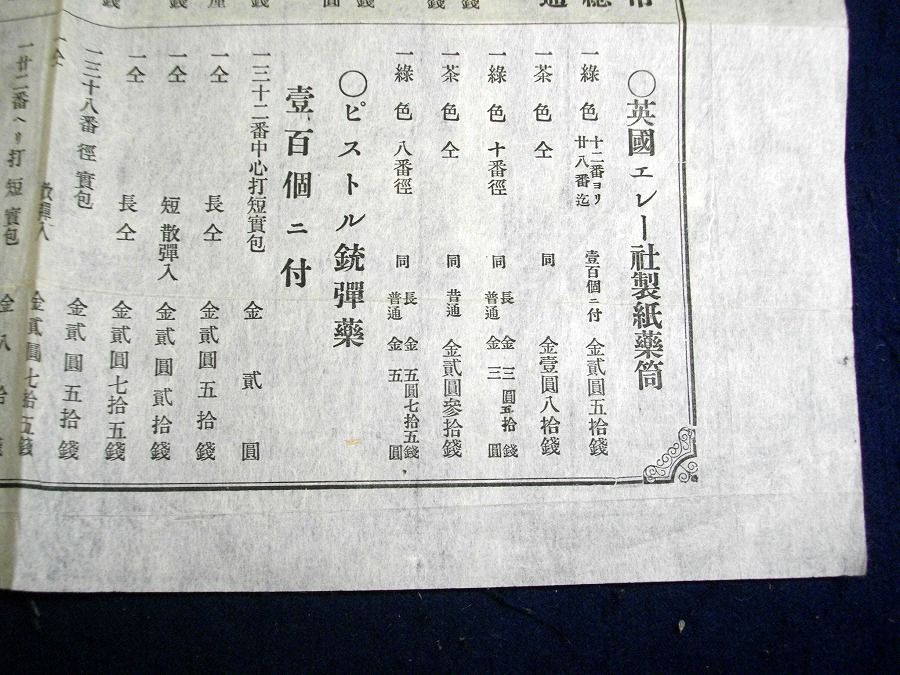 ○英國エレー社製紙藥筒
一綠色 十二番ヨリ廿八番迄 壹百個ニ付 金貳圓五拾錢
一茶色 仝 同 金壹圓八拾錢
一綠色 十番徑 同 長 金三圓五拾錢 普通 金三圓
一茶色 仝 同 普通 金貳圓參拾錢
一綠色 八番徑 同 長 金五圓七拾五錢 普通 金五圓
○ピストル銃彈藥
壹百個ニ付
一三十二番中心打短實包 金貳圓
一仝 長仝 金貳圓五拾錢
一仝 短散彈入 金貳圓貳拾錢
一仝 長仝 金貳圓七拾五錢
一三十八番徑實包 金貳圓五拾錢
一仝 散彈入 金貳圓七拾五錢
一廿二番ヘリ打短實包 金八拾錢